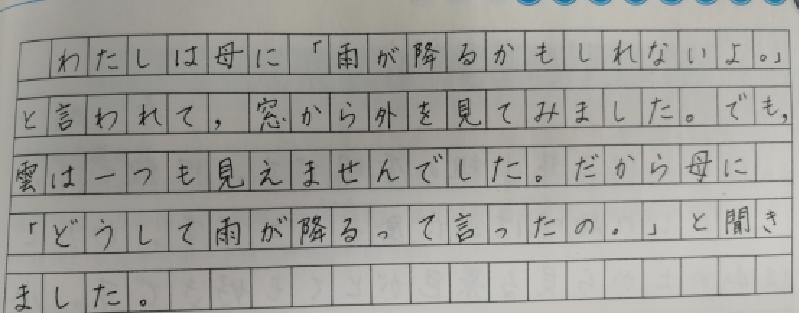 わたしは母に「雨が降るかもしれないよ。」
と言われて,窓から外を見てみました。でも,
雲は一つも見えませんでした。だから母に
「どうして雨が降るって言ったの。」と聞き
ました。